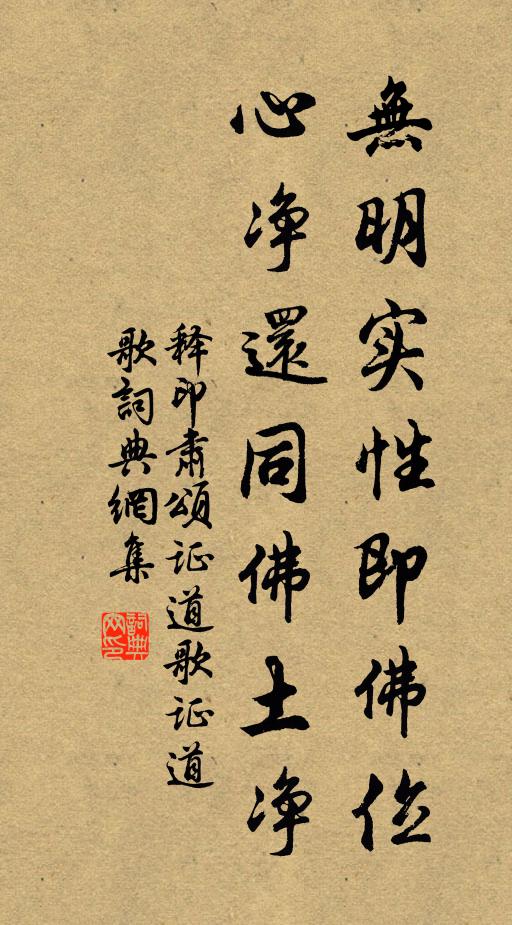 無明实性即佛位
心净還同佛土净
释印肃頌证道歌证道
歌詞典網集
詞典
网印